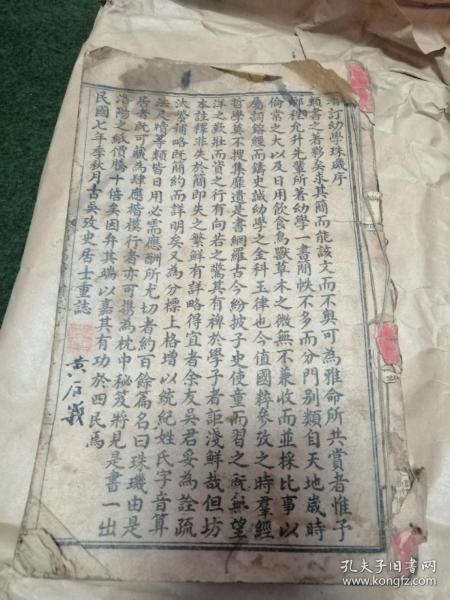 增訂幼學珠璣序
類書之著夥矣求其簡而能該文而不奧可為雅俗所共賞者惟予
鄉程允升先輩所著幼學一書簡帙不多而分門別類自天地歲時
倫常之大以及日用飲食鳥獸草木之微無不兼收而並採比事以
屬詞鎔經而鑄史誠幼學之金科玉律也今值國粹參攷之時羣經
哲學莫不搜集靡遺是書網羅古今紛披子史使童而習之既無望
洋之歎壯而資之行有向若之驚其有裨於學子者詎淺鮮哉但坊
本註釋非失於簡即失之繁鮮有詳略得宜者余友吳君妥為詮疏
汰繁補略既簡約而詳明矣又為分標上格增以統紀姓氏字音算
法尺牘等類皆日用必需應酬所尤切者約百餘篇名曰珠璣由是
居者既可藏為肆應楷模行者亦可携為枕中秘笈將見是書一出
洛陽之紙價騰十倍矣因弁其端以嘉其有功於四民焉
民國七年季秋月古吳攷史居士重誌
孔夫子旧书网
www.kongfz.com